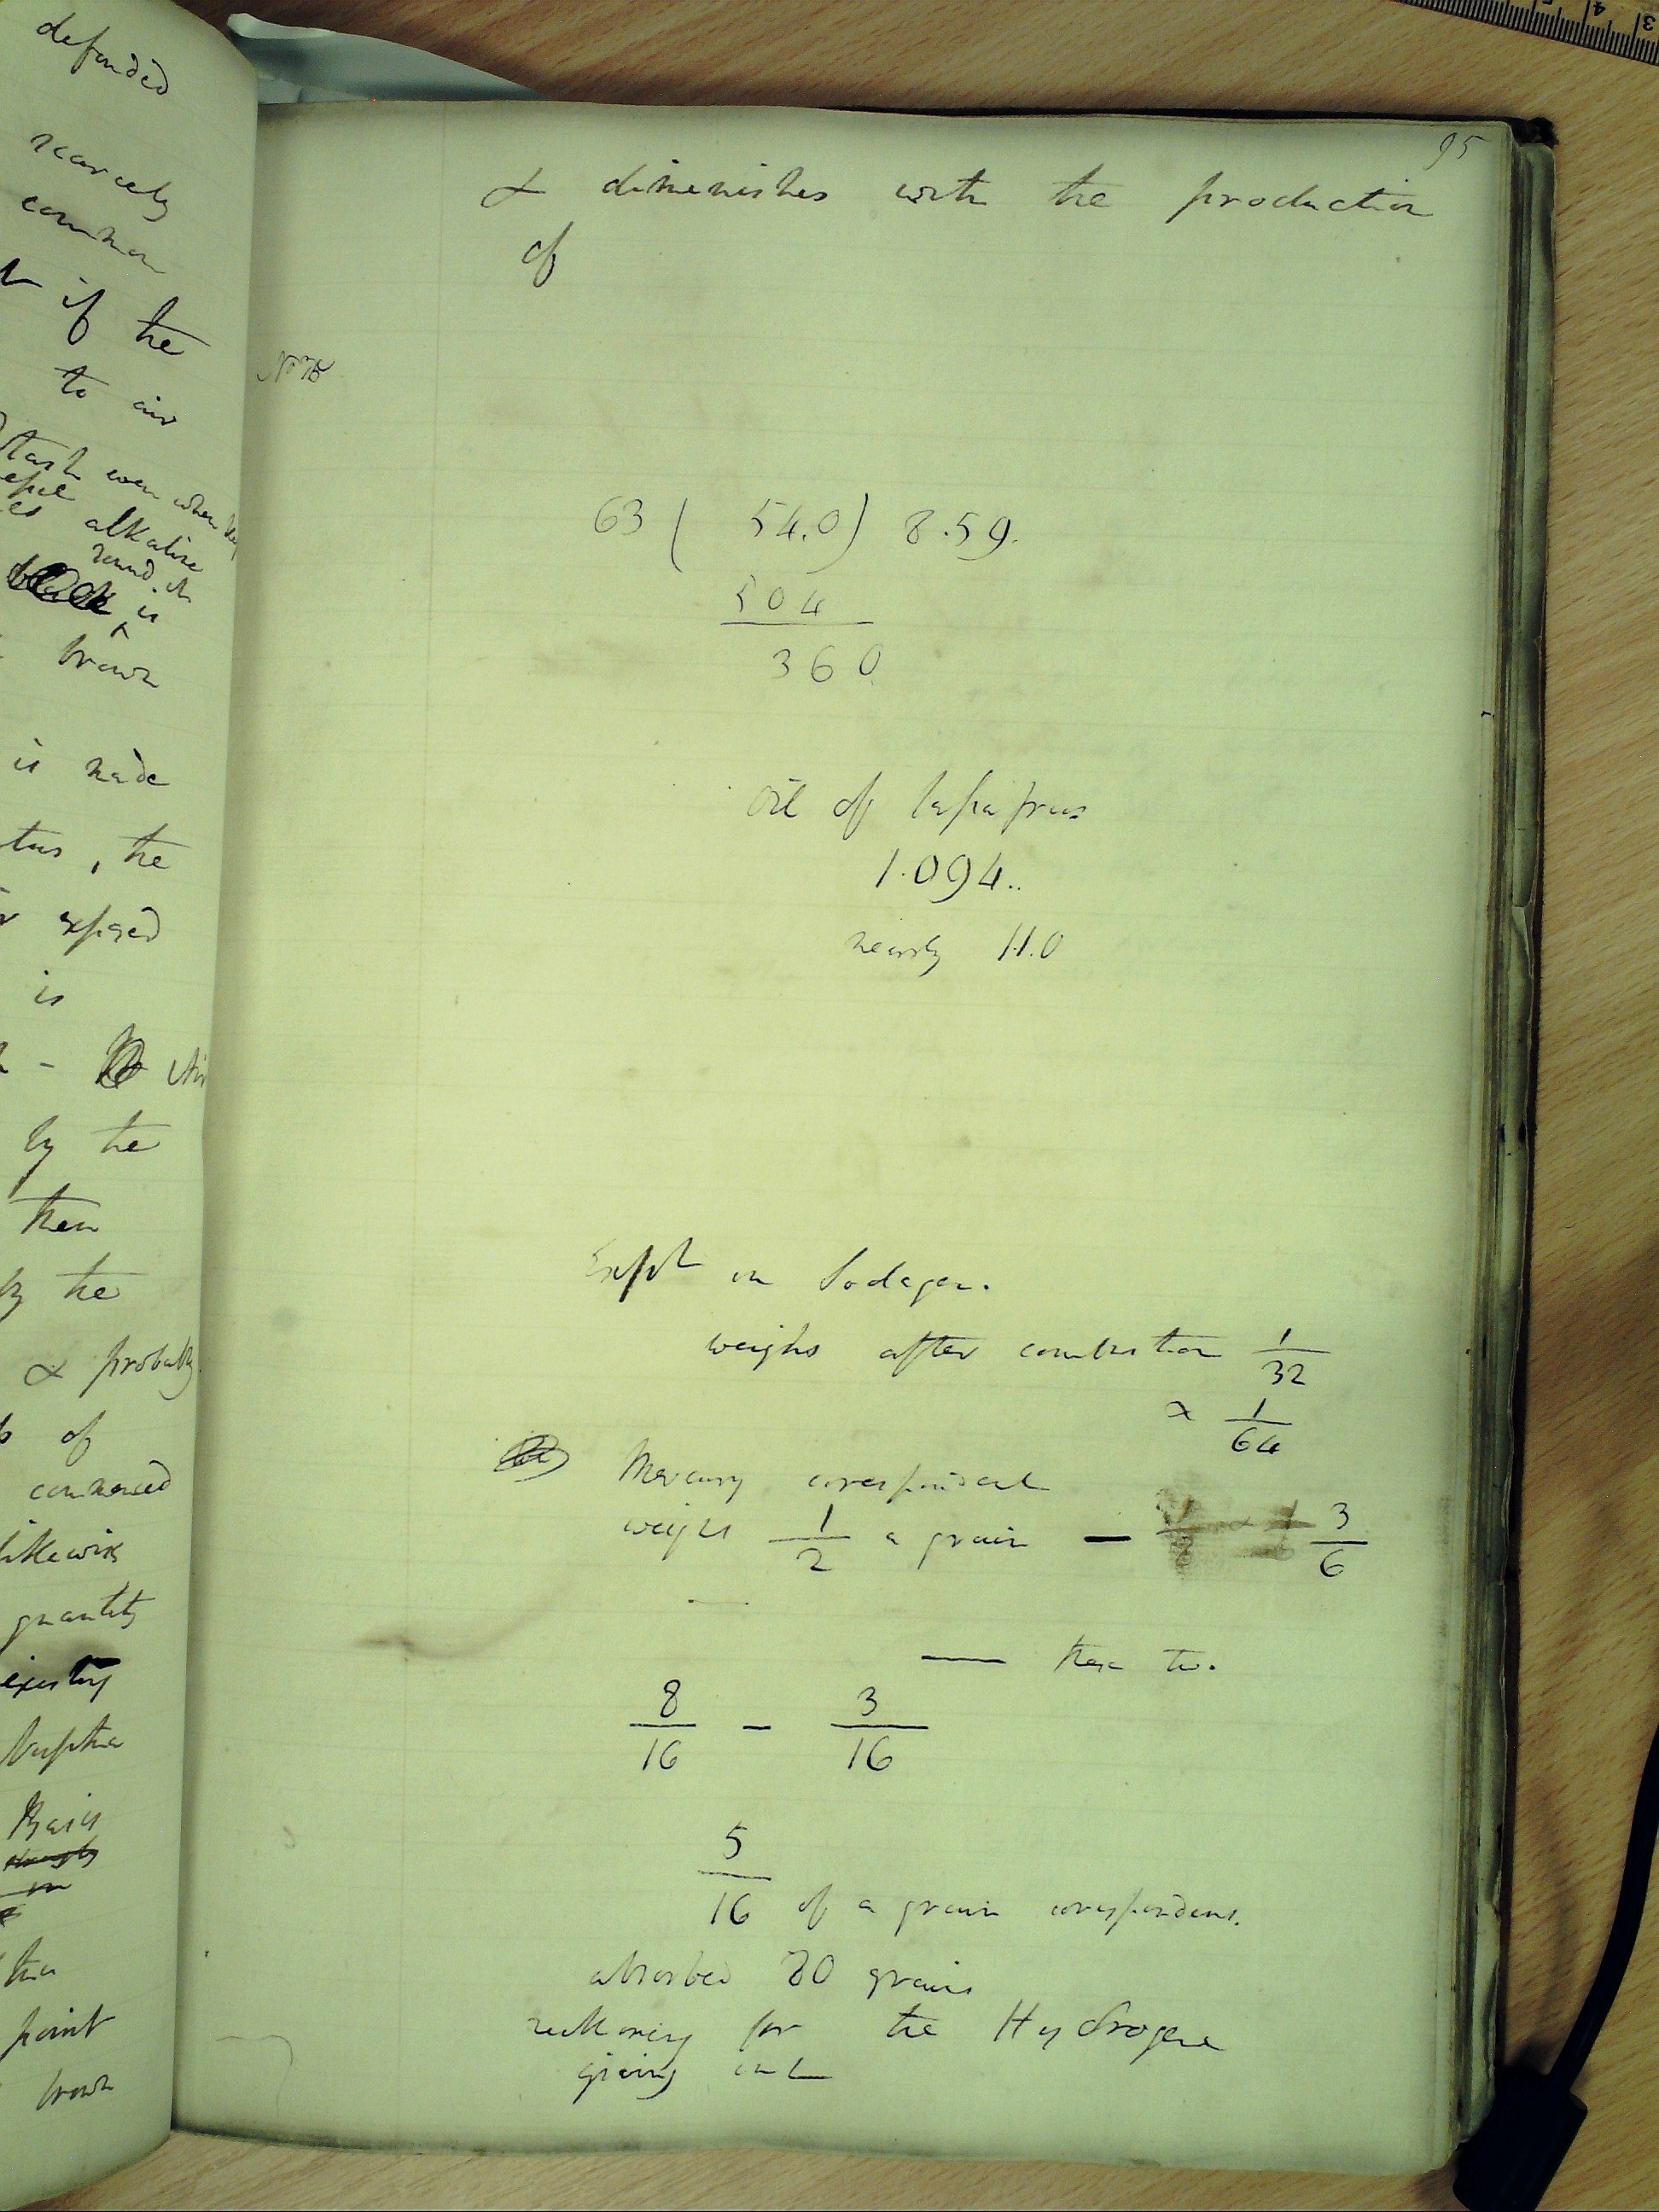 defended
scarcely
common
if the
to air
even when
alkaline
round it
is
brown
is made
the
exposed
is
by the
then
by the
& probably
of
commenced
likewise
quantity
existing
Naptha
Basis
point
brown
95
& diminishes with the production
of
63 ( 54.0) 8.59.
504
360
Oil of Sassafras
1.094..
nearly 11.0
Expt on Sodagen.
weighs after combustion 1/32
& 1/64
Mercury correspondent
weighs 1/2 a grain — 3/6
— these two.
8/16 - 3/16
5/16 of a grain correspondent.
absorbed 80 grains
reckoning for the Hydrogene
giving out